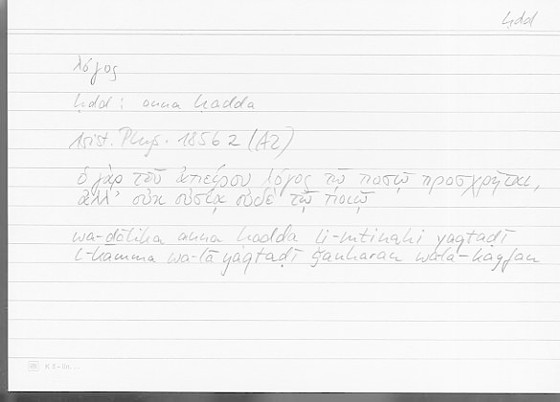 ḥdd
λόγος
ḥdd : anna ḥadda
Arist. Phys. 185b 2 (A2)
ὁ γὰρ τοῦ ἀπείρου λόγος τῷ ποσῷ προσχρῆται,
ἀλλ' οὐκ οὐσίᾳ οὐδὲ τῷ ποιῷ
wa-ḏālika anna ḥadda li-mtināhi yaqtaḍī
l-kamma wa-lā yaqtaḍī ǧauharan wa-lā-kayfan